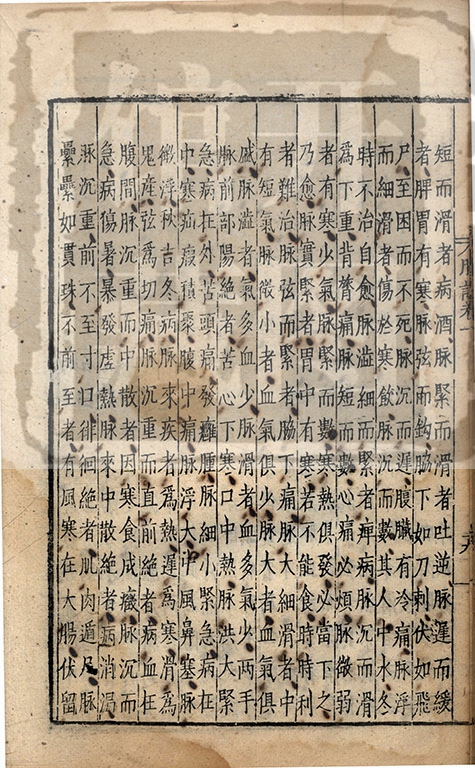 短而滑者病酒脉緊而滑者吐逆脉遲而緩
者脾胃有寒脉弦而鈎脇下如刀刺伏如飛
尸至困而不死脉沉而遲腹臟有冷痛脉浮
而細滑者傷於寒飲脉沉而數其人中水冬
時不治自愈脉澁細而緊者痺病脉沉而滑
爲下重背膂痛脉短而數心痛必煩脉微弱
者有寒少氣脉緊而數寒熱俱發必當下之
乃愈脉實緊者胃中有寒若不能食時時利
者難治脉弦而緊者脇下痛脉大細滑者中
有短氣脉微小者血氣俱少脉大者血氣俱
盛脉澁者氣多血少脉滑者血多氣少兩手
脉前部陽絕者苦心下寒口中熱脉洪大緊
急病在外苦頭痛發癰腫脉細小緊急病在
中寒疝瘕積聚腹中痛脉浮大中風鼻塞脉
微浮秋吉冬病脉來疾者爲熱遲爲寒滑爲
鬼産弦爲切痛脉沉重而直前絕者病血在
腹間脉沉重而中散者因寒食成癥脉沉而
急病傷暑暴發虛熱脉來中散絕者病消渴
脉沉重前不至寸口徘徊絕者肌肉遁尸脉
纍纍如貫珠不前至者有風寒在大腸伏留